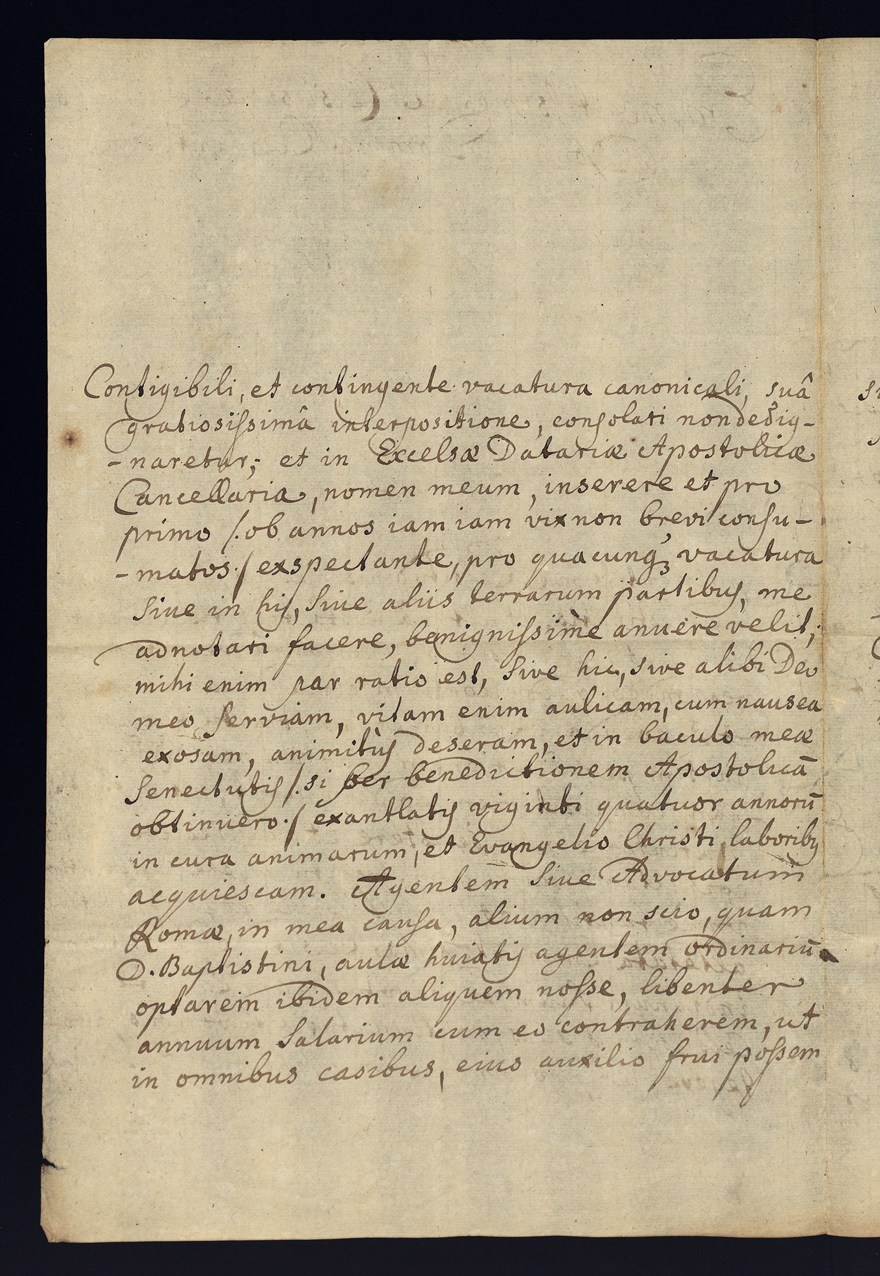 Contigibili, et contingente vacatura canonicali, suâ
gratiosissimâ interpositione, consolari non dedig-
-naretur; et in Excelsæ Datariæ Apostolicæ
Cancellaria, nomen meum, inserere et pro
primo /: ob annos iam iam vix non brevi consu-
-matos :/ exspectante, pro quacunq3 vacatura
sive in his, sive aliis terrarum partibus, me
adnotari facere, benignissimè anuere velit;
mihi enim par ratio est, sive hic, sive alibi Deo
meo serviam, vitam enim aulicam, cum nausea
exosam, animitùs deseram, et in baculo meæ
senectutis /: si per benedictionem Apostolicā
obtinuero :/ exantlatis viginti quatuor annorū
in cura animarum, et Evangelio Christi laboribus
acquiescam. Agentem sive Advocatum
Romæ, in mea causa, alium non scio, quam
D. Baptistini, aulæ huiatis agentem ordinariū
optarem ibidem aliquem nosse, libenter
annuum salarium cum eo contraherem, ut
in omnibus casibus, eius auxilio frui possem